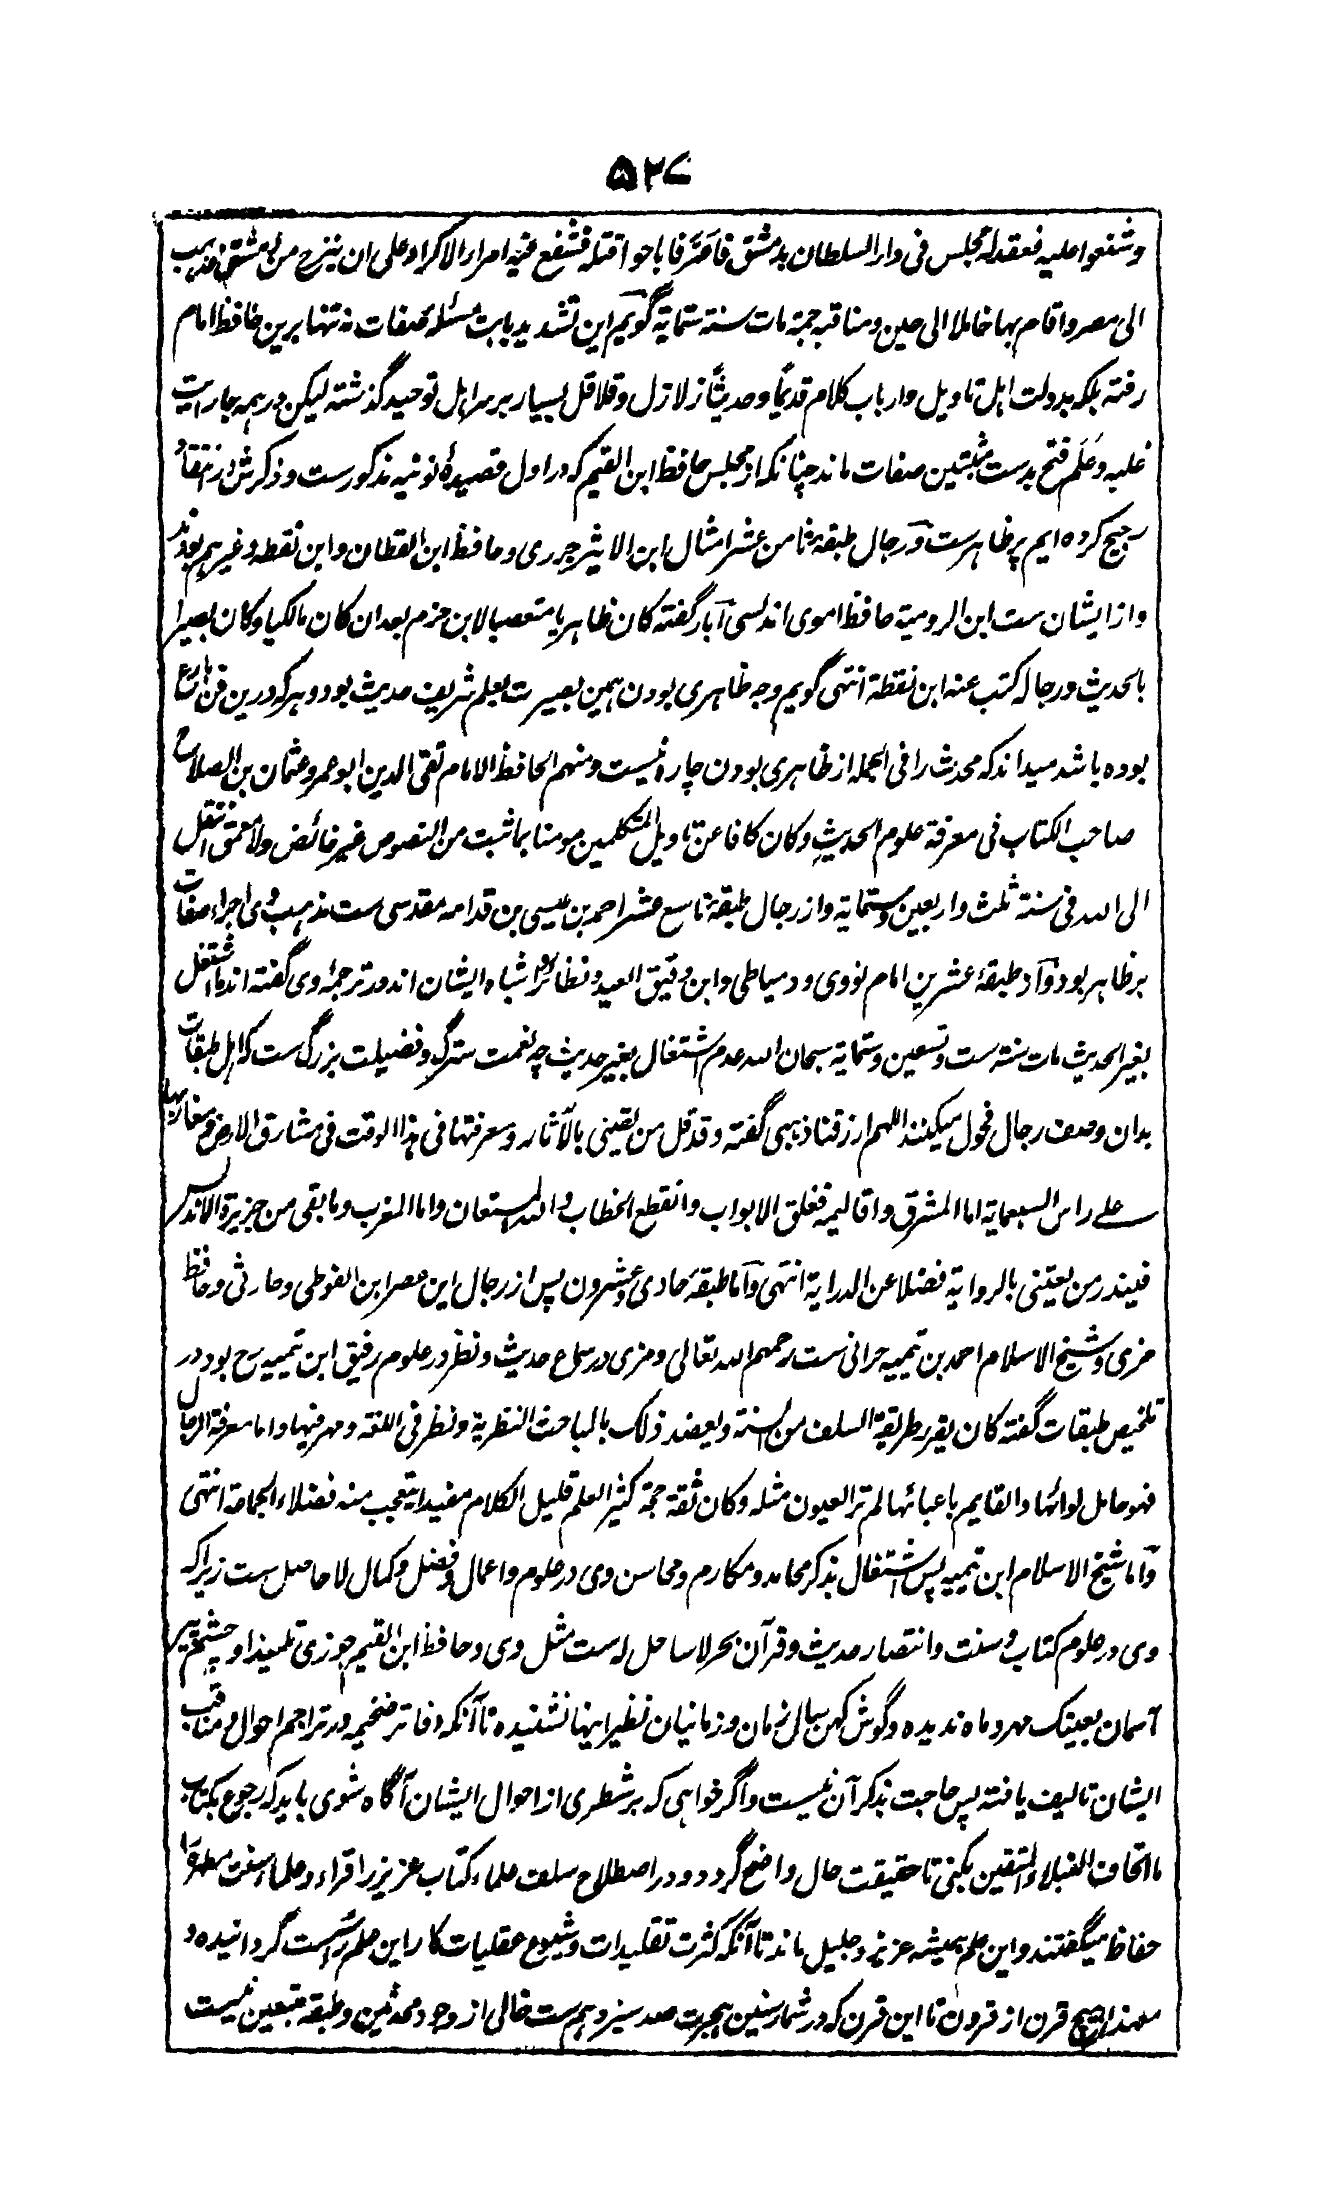 ۵۲۷
وشنعوا علیه فعقد له مجلس فی دار السلطان بدمشق فاصر فاباحوا قتله فشفع فیه امراء الاکراد علی ان ینزح من دمشق فذهب
الی مصر واقام بها خاملا الی حین ومناقبه جمة مات سنة ستمایة گویم این تشدید بابت مسئله صفات نه تنها برین حافظ امام
رفته بلکه بدولت اهل تاویل وارباب کلام قدیما وحدیثا زلازل وقلاقل بسیار بر سر اهل توحید گذشته لیکن در همه جا رایت
غلبه وعلم فتح بدست مثبتین صفات ماند چنانکه از مجلس حافظ ابن القیم که در اول قصیدهٔ نونیه مذکورست وذکرش در انتقاد
رجیح کرده ایم پر ظاهرست ودر رجال طبقهٔ ثامن عشر امثال ابن الاثیر جزری وحافظ ابن القطان وابن نقطه وغیرهم بودند
واز ایشان ست ابن الرومیة حافظ اموی اندلسی آبار گفته کان ظاهریا متعصبا لابن حزم بعد ان کان مالکیا وکان بصیرا
بالحدیث ورجاله کتب عنه ابن نقطة انتهی گویم وجه ظاهری بودن همین بصیرت بعلم شریف حدیث بود وهر که درین فن بارع
بوده باشد میداند که محدث را فی الجمله از ظاهری بودن چاره نیست ومنهم الحافظ الامام تقی الدین ابو عمرو عثمان بن الصلاح
صاحب الکتاب فی معرفة علوم الحدیث وکان کافا عن تاویل المتکلمین مومنا بما ثبت من النصوص غیر خائض ولا معمق انتقل
الی الله فی سنة ثلث واربعین وستمایة واز رجال طبقهٔ تاسع عشر احمد بن عیسی بن قدامه مقدسی ست مذهب وی اجراء صفات
بر ظاهر بود ودر طبقهٔ عشرین امام نووی ودمیاطی وابن دقیق العید ونظائر واشباه ایشان اند ودر ترجمهٔ وی گفته اند ما اشتغل
بغیر الحدیث مات سنة ست وتسعین وستمایة سبحان الله عدم اشتغال بغیر حدیث چه نعمت سترگ وفضیلت بزرگ ست که اهل طبقات
بدان وصف رجال فحول میکنند اللهم ارزقنا ذهبی گفته وقد قل من یعتنی بالآثار ومعرفتها فی هذا الوقت فی مشارق الارض ومغاربها
علے راس السبعمایة اما المشرق واقالیمه فغلق الابواب وانقطع الخطاب والله المستعان واما المغرب وما بقی من جزیرة الاندلس
فیندر من یعتنی بالروایة فضلا عن الدرایة انتهی واما طبقهٔ حادی وعشرون پس از رجال این عصر ابن الفوطی وحارثی وحافظ
مزی وشیخ الاسلام احمد بن تیمیه حرانی ست رحمهم الله تعالی ومزی در سماع حدیث ونظر در علوم رفیق ابن تیمیه رح بود در
تلخیص طبقات گفته کان یقرر طریقة السلف من السنة ویعضد ذلک بالمباحث النظریة ونظر فی اللغة ومهر فیها واما معرفة الرجال
فهو حامل لوائها والقایم باعبائها لم تر العیون مثله وکان ثقة حجة کثیر العلم قلیل الکلام مفیدا یتعجب منه فضلاء الجماعة انتهی
واما شیخ الاسلام ابن تیمیه پس اشتغال بذکر محامد ومکارم ومحاسن وی در علوم واعمال وفضل وکمال لا حاصل ست زیرا که
وی در علوم کتاب وسنت وانتصار حدیث وقرآن بحر لا ساحل له ست مثل وی وحافظ ابن القیم جوزی تلمیذ او چشم پیر
آسمان بعینک مهر وماه ندیده وگوش کهن سال زمان وزمانیان نظیر اینها نشنیده تا آنکه دفاتر ضخیمه در تراجم احوال ومناقب
ایشان تالیف یافته پس حاجت بذکر آن نیست واگر خواهی که بر شطری از احوال ایشان آگاه شوی باید که رجوع بکتاب
ما اتحاف النبلاء المتقین بکنی تا حقیقت حال واضح گردد ودر اصطلاح سلف علماء کتاب عزیز را قراء وعلماء سنت مطهره را
حفاظ میگفتند واین علم همیشه عزیز وجلیل ماند تا آنکه کثرت تقلیدات وشیوع عقلیات کار این علم را سست گردانیده و
معهذا هیچ قرن از قرون تا این قرن که در شمار سنین هجرت صد سیزدهم ست خالی از وجود محدثین وطبقه متبعین نیست